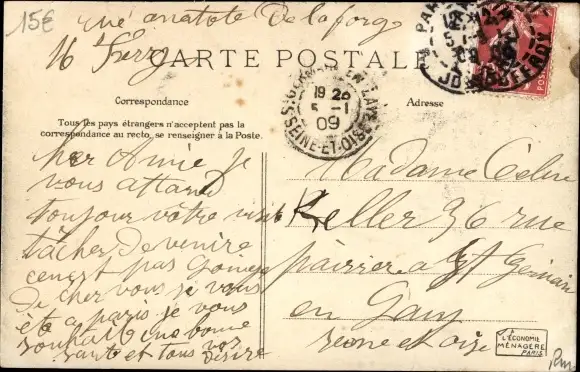 15€
rue anatole Delaforge
16
CARTE POSTALE
Correspondance
Tous les pays étrangers n'acceptent pas la
correspondance au recto, se renseigner à la Poste.
Adresse
ST GERMAIN EN LAYE
19 26
5 - 1
09
SEINE-ET-OISE
PARIS
cher Amie je
vous attard
toujour votre visit
tâcher de venire
cenest pas
de cher vous si vous
ète a paris je vous
souhait une bonne
santé et tous vos
désire
Madame Celine
Keller 36 rue
à St Germain
en Lay
seine et oise
L'ÉCONOMIE
MÉNAGÈRE
PARIS